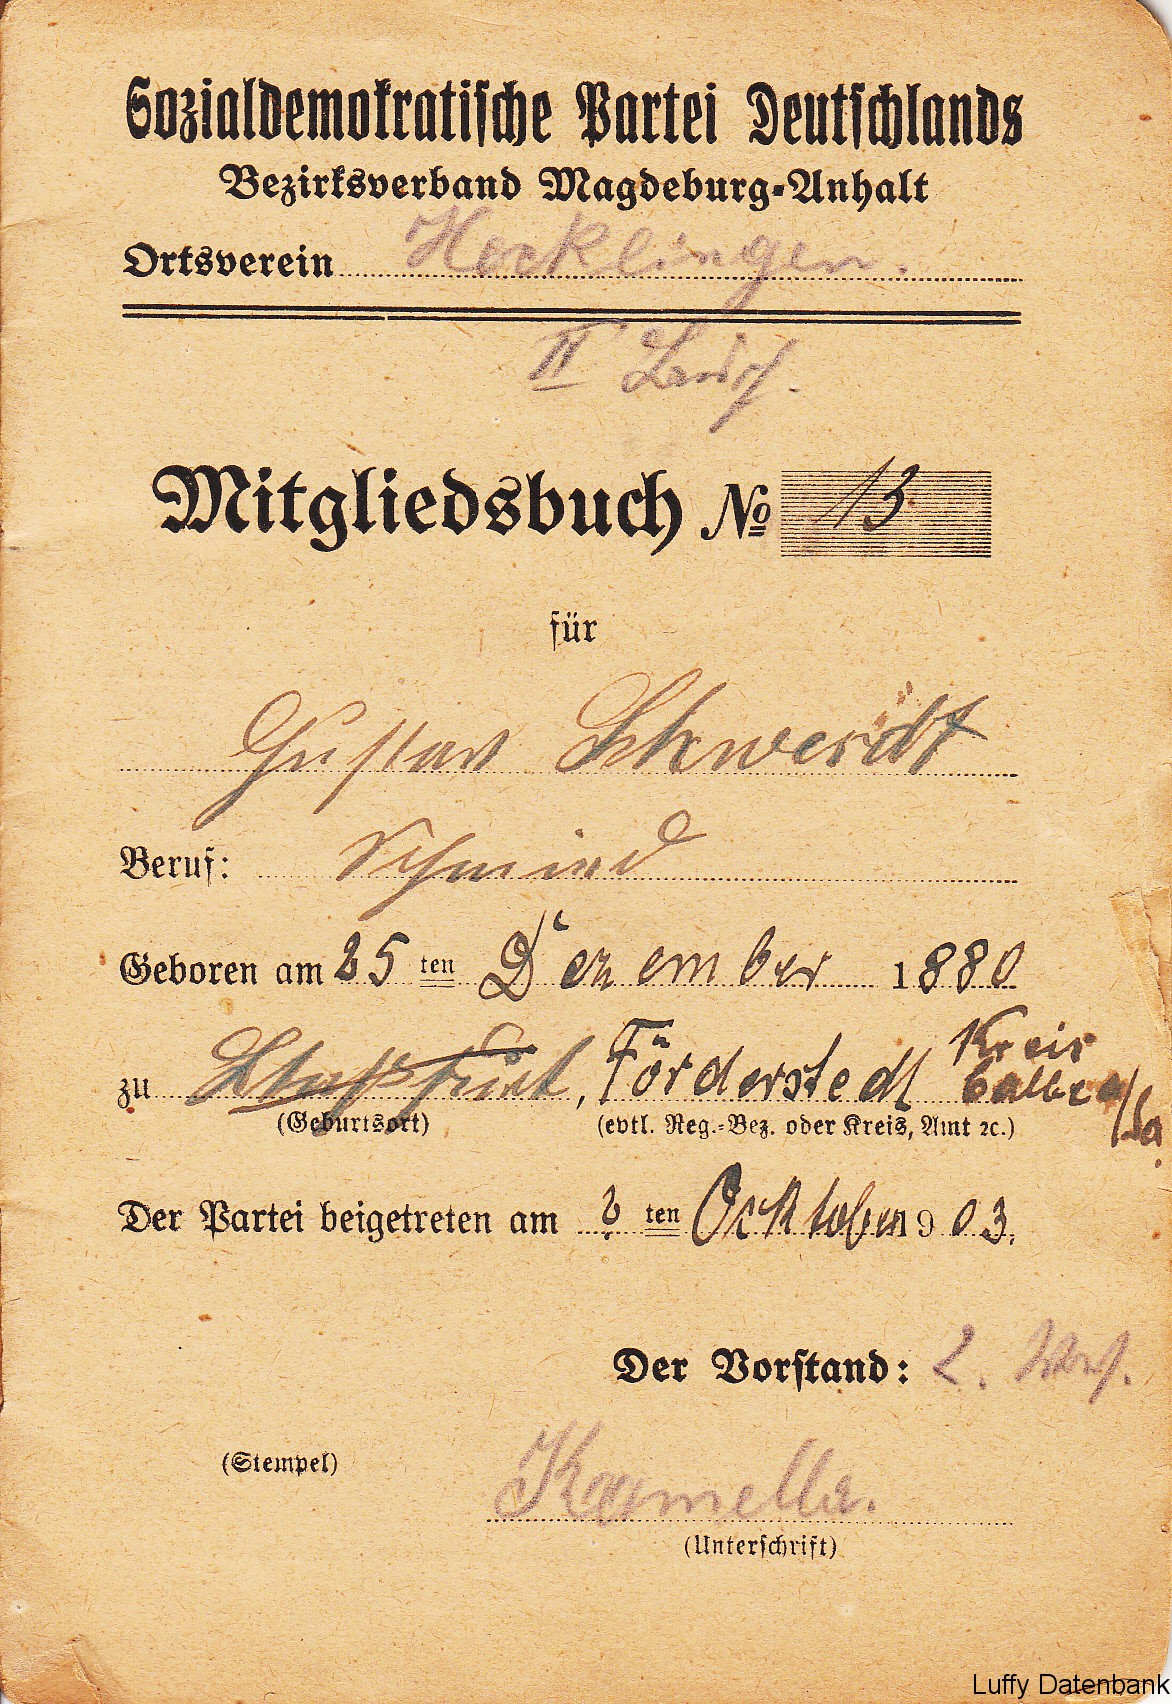 Sozialdemokratische Partei Deutschlands
Bezirksverband Magdeburg-Anhalt
Ortsverein Hecklingen.
II
Mitgliedsbuch № 13
für
Gustav Schwerdt
Beruf: Schmied
Geboren am 25 ten Dezember 1880
zu Staßfurt, Förderstedt Kreis Calbe a/Sa.
(Geburtsort) (evtl. Reg.-Bez. oder Kreis, Amt ꝛc.)
Der Partei beigetreten am ten Ocktober 1903.
Der Vorstand: 2. Vors.
(Stempel)
Kamella.
(Unterschrift)
Luffy Datenbank